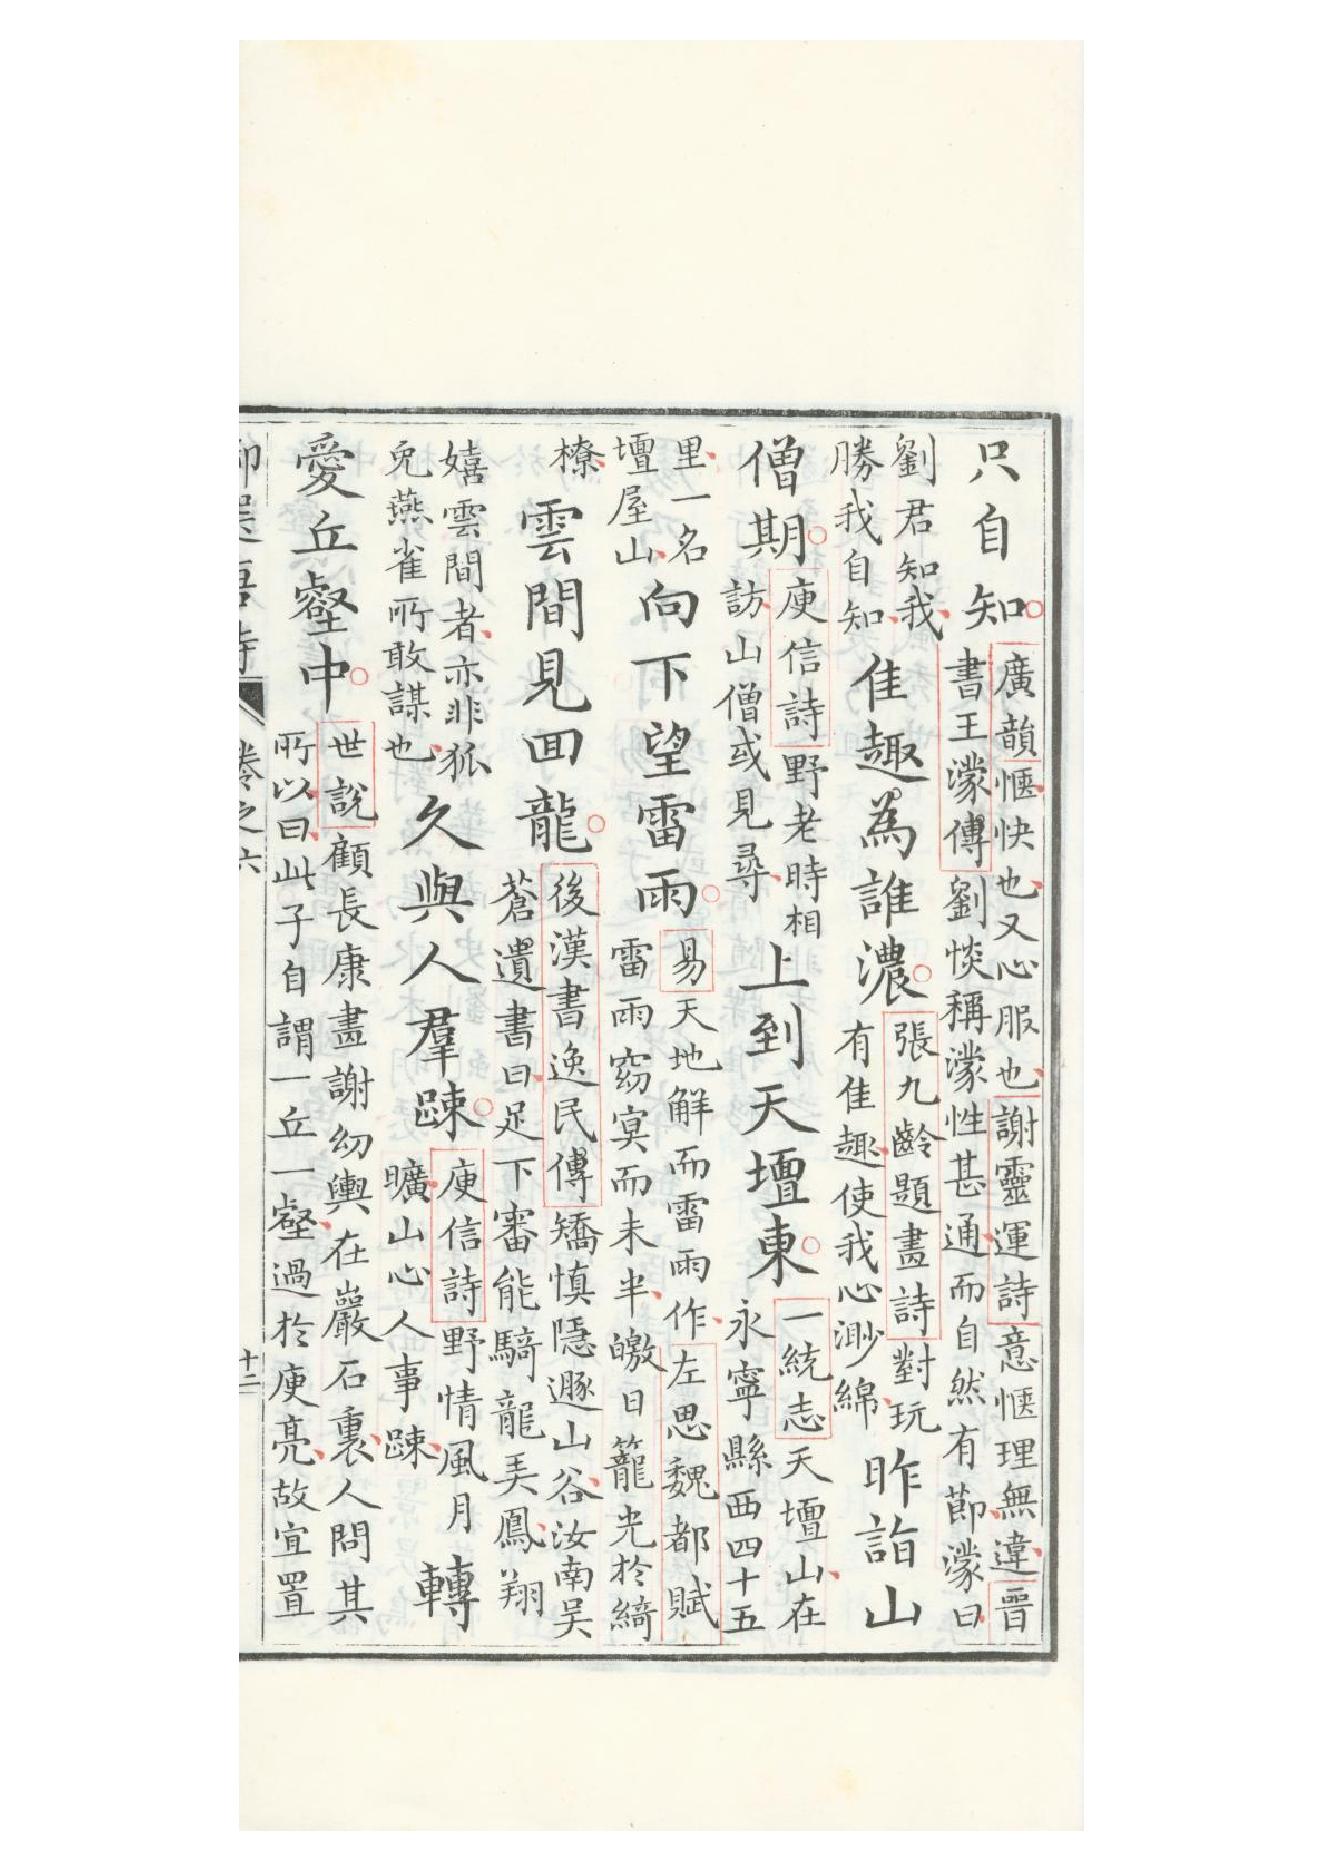 只自知
廣韻愜快也又心服也謝靈運詩意愜理無違晉
書王濛傳劉惔稱濛性甚通而自然有節濛曰
劉君知我
勝我自知
佳趣為誰濃
張九齡題畫詩對玩
有佳趣使我心渺綿
昨詣山
僧期
庾信詩野老時相
訪山僧或見尋
上到天壇東
一統志天壇山在
永寧縣西四十五
里一名
壇屋山
向下望雷雨
易天地解而雷雨作左思魏都賦
雷雨窈冥而未半皦日籠光於綺
橑
雲間見回龍
後漢書逸民傳矯慎隱遯山谷汝南吴
蒼遺書曰足下審能騎龍弄鳳翔
嬉雲間者亦非狐
兔燕雀所敢謀也
久與人羣踈
庾信詩野情風月
曠山心人事踈
轉
愛丘壑中
世說顧長康畫謝幼輿在巖石裏人問其
所以曰此子自謂一丘一壑過於庾亮故宜置
卷之六
十二